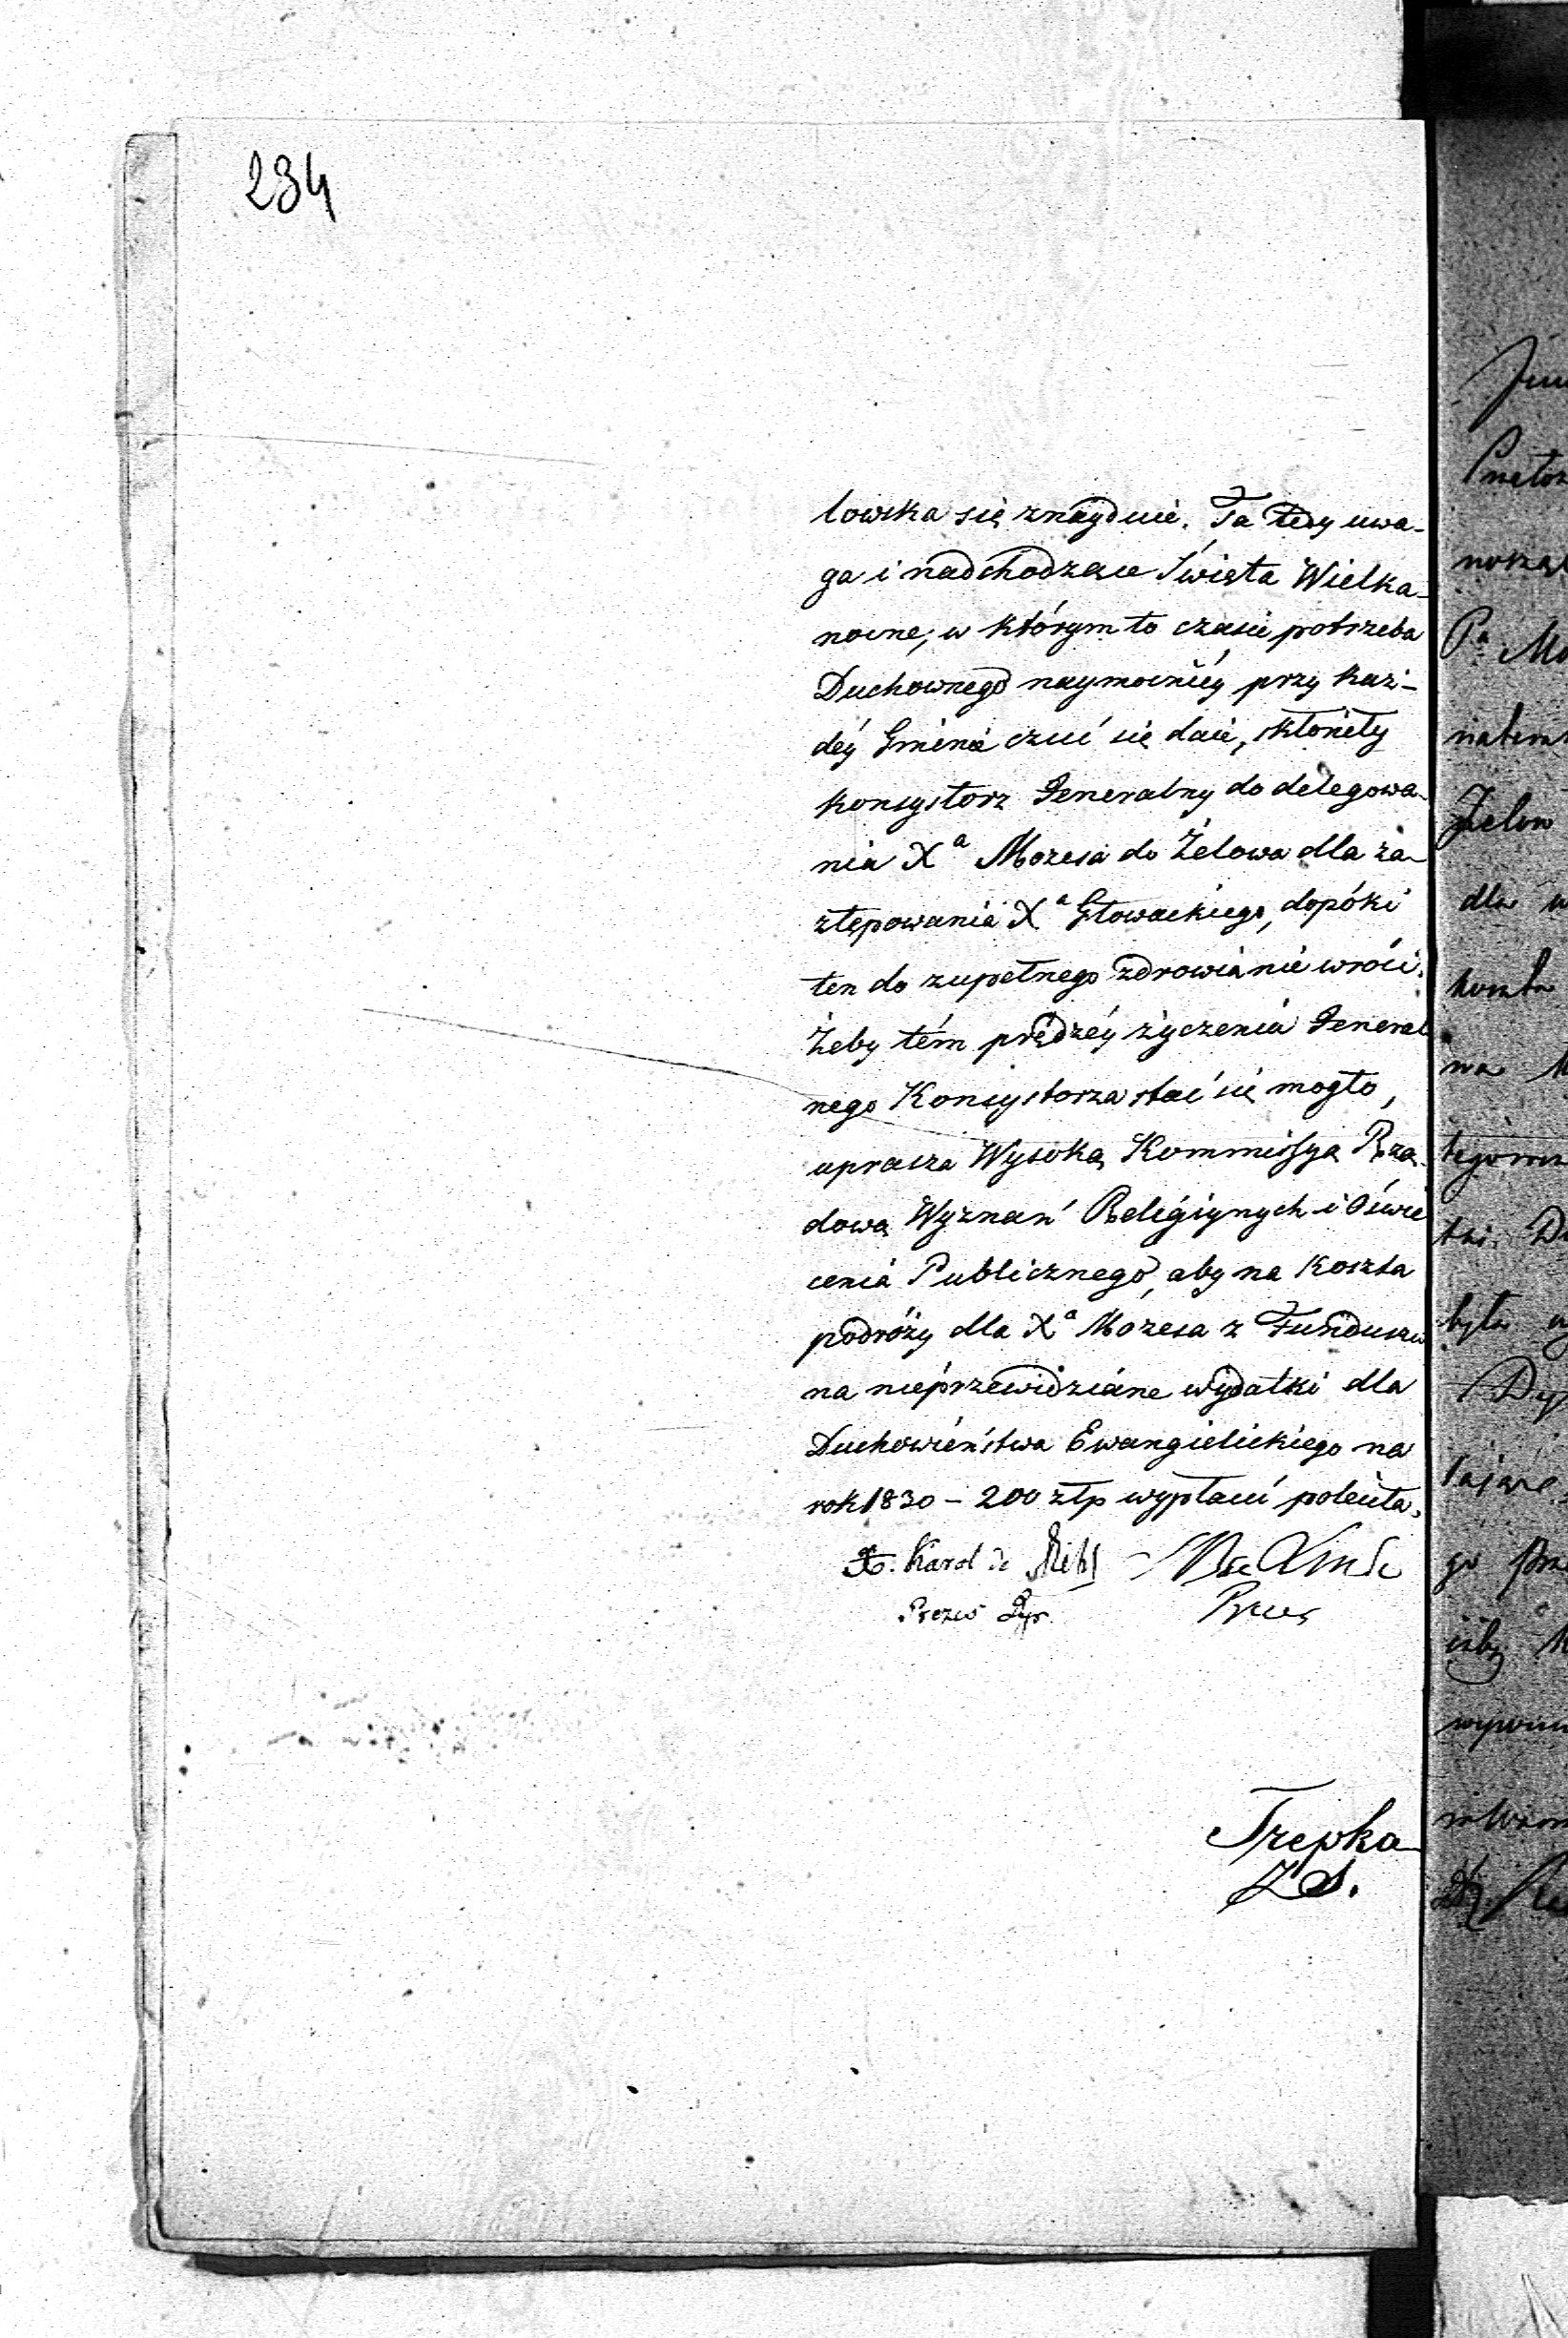 234
lowska się znayduie. Ta tedy uwa-
ga i nadchodzące Święta Wielka-
nocne, w którym to czasie potrzeba
Duchownego naymocniéy przy każ-
déy Gminie czuć się daie, skłoniły
Konsystorz Jeneralny do delegowa-
nia Xᵃ Mozesa do Żelowa dla za-
ztępowania Xᵃ Głowackiego, dopóki
ten do zupełnego zdrowia nie wróci.
Żeby tém prędzéy życzenia Jeneral
nego Konsystorza stać się mogło,
uprasza Wysoką Kommissyą Rzą-
dową Wyznań Religiynych i Oświe
cenia Publicznego, aby na koszta
podróży dla Xᵃ Mozesa z Funduszu
na nieprzewidziane wydatki dla
Duchowieństwa Ewangielickiego na
rok 1830 – 200 złp wypłacić poleciła.
Karol
Prezes Dyr.
Trepka
Z S.